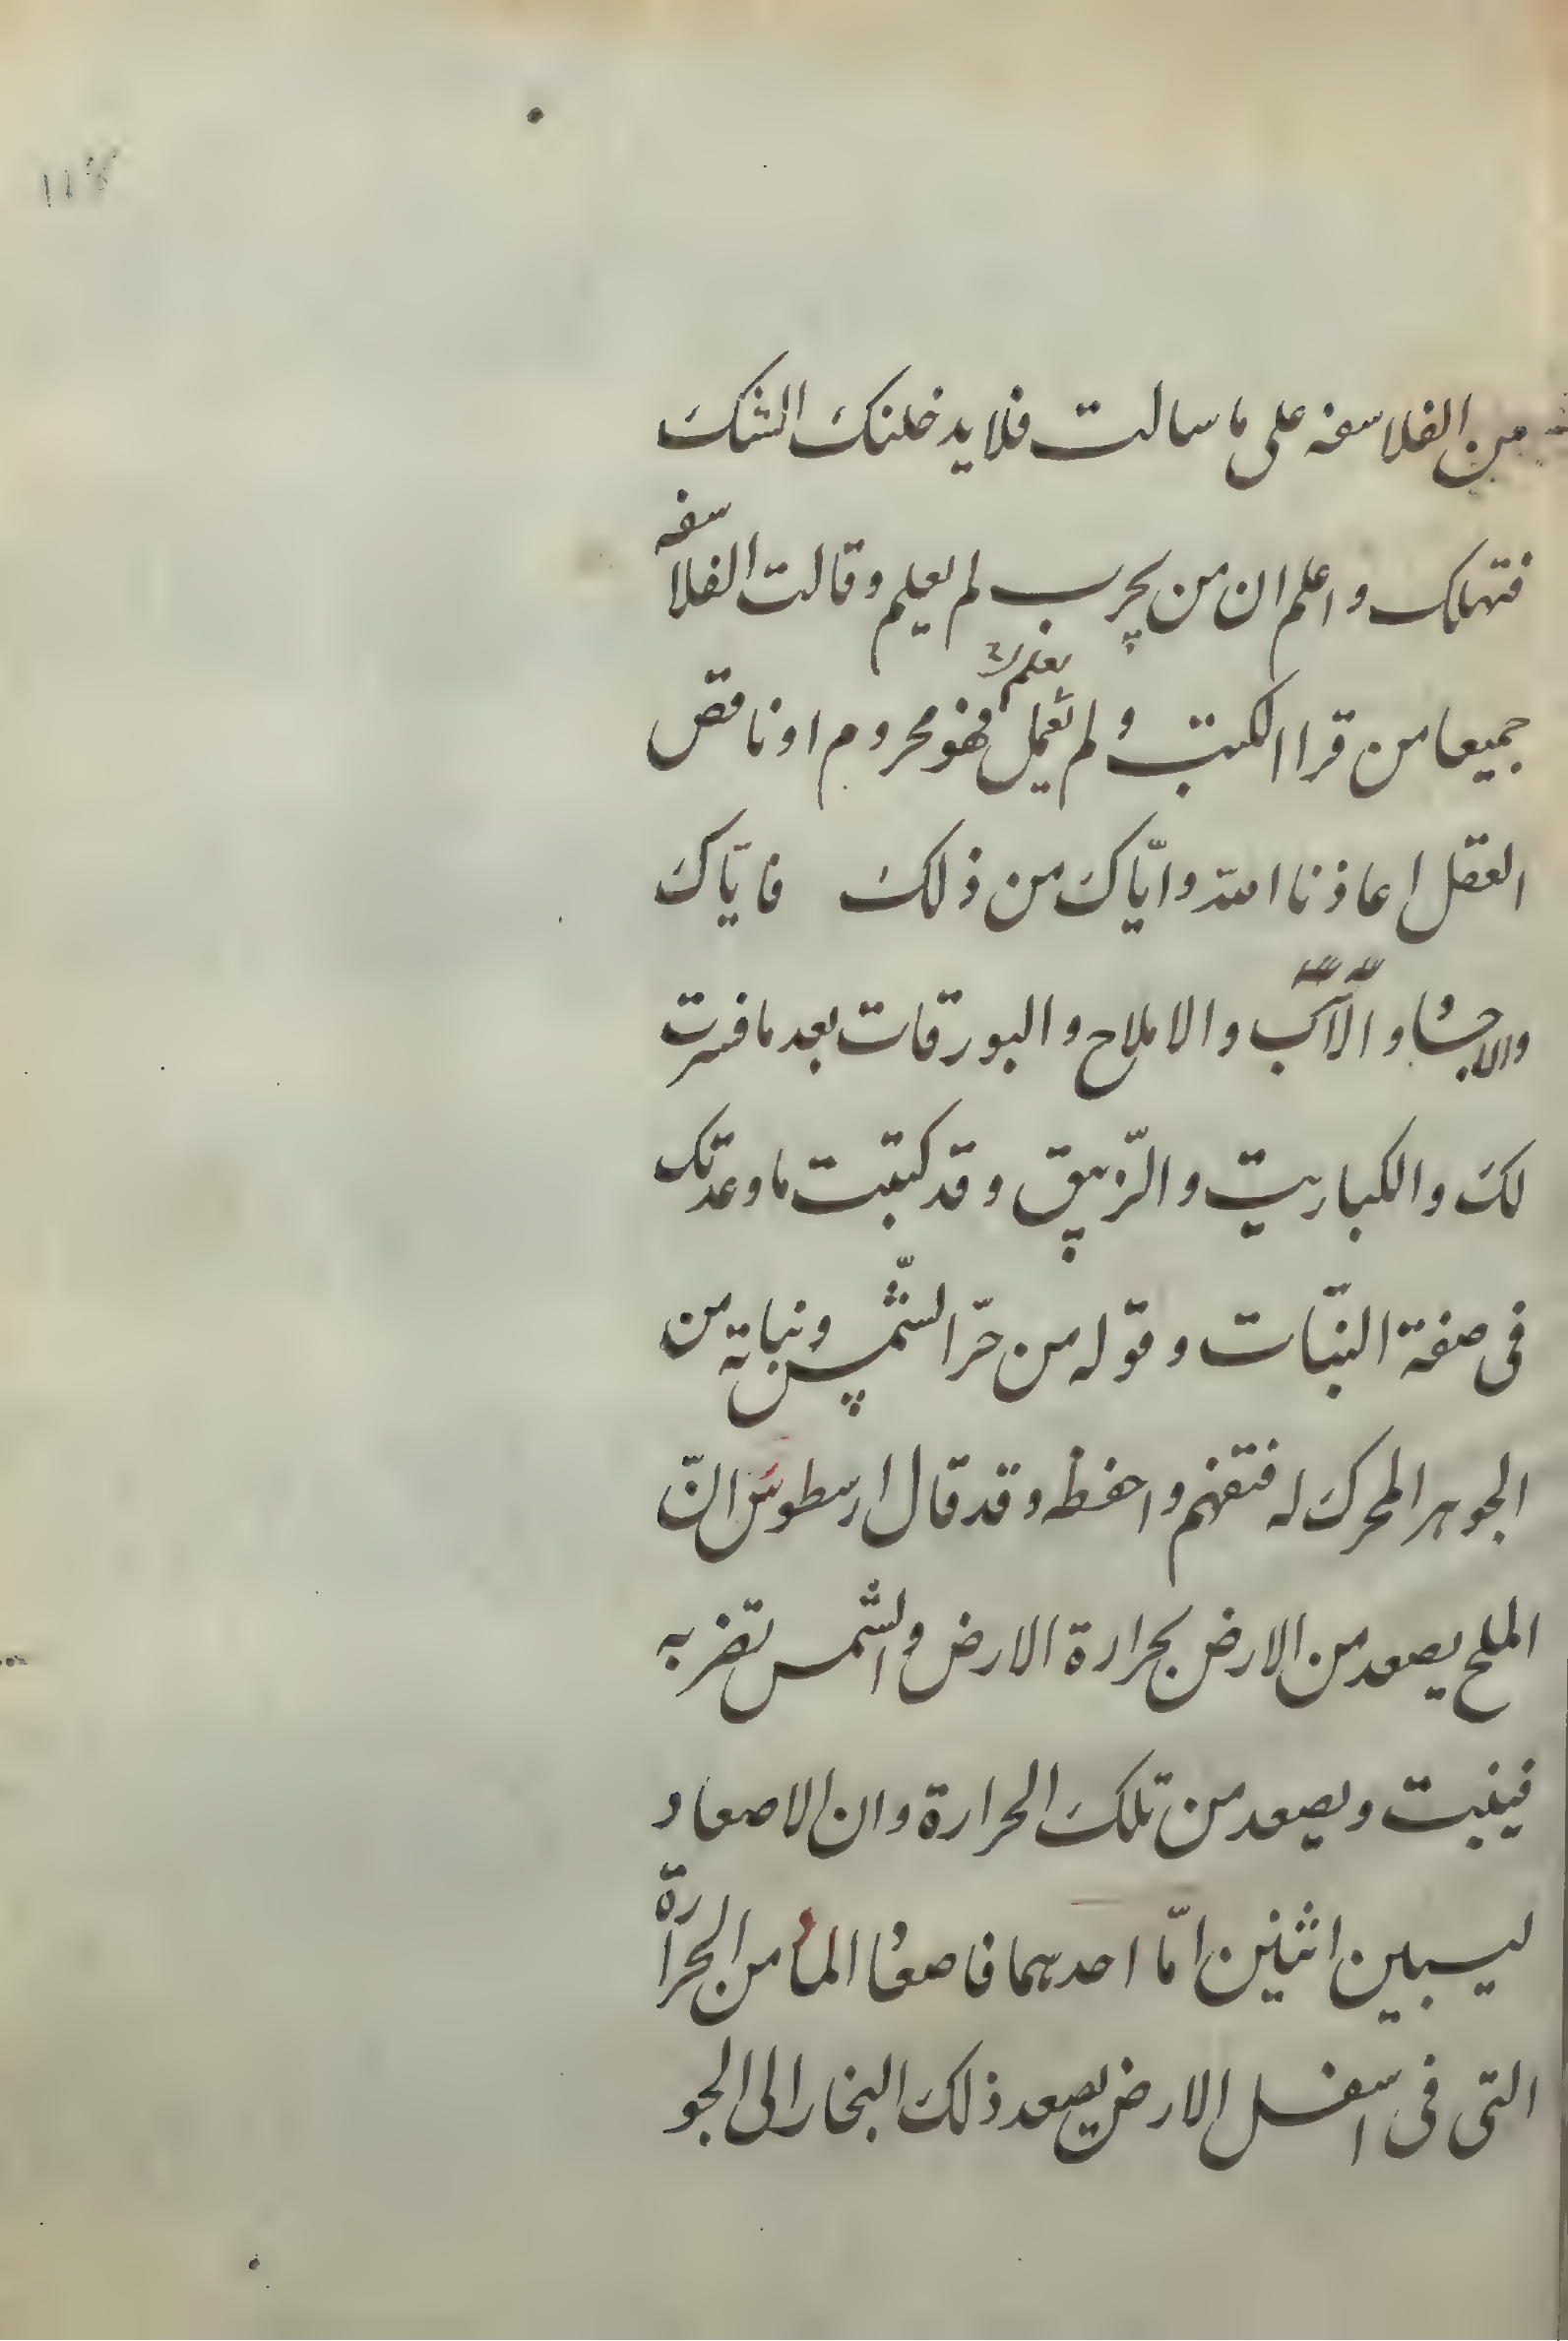 من الفلاسفه على ما سالت فلا يدخلنك الشك
فتهلك و اعلم ان من يجرب لم يعلم و قالت الفلاسفه
جميعا من قرا الكتب و لم يعمل فهو محروم او ناقص
يعلم
العقل اعاذنا الله و ايّاك من ذلك فايّاك
والاجسا و الآكب والاملاح و البورقات بعد ما فسرت
لك و الكباريت و الزّيبق و قد كتبت ما وعدتك
فى صفة النبّات و قوله من حرّ الشّمس و نباته من
الجوهر المحرك له فتفهم و احفظه و قد قال ارسطوس انّ
الملح يصعد من الارض بحرارة الارض و الشمس تضربه
فينبت و يصعد من تلك الحرارة و ان الاصعاد
ليسبين اثنين امّا احدهما فاصعا الماء من الحرارة
التى فى اسفل الارض يصعد ذلك البخار الى الجو